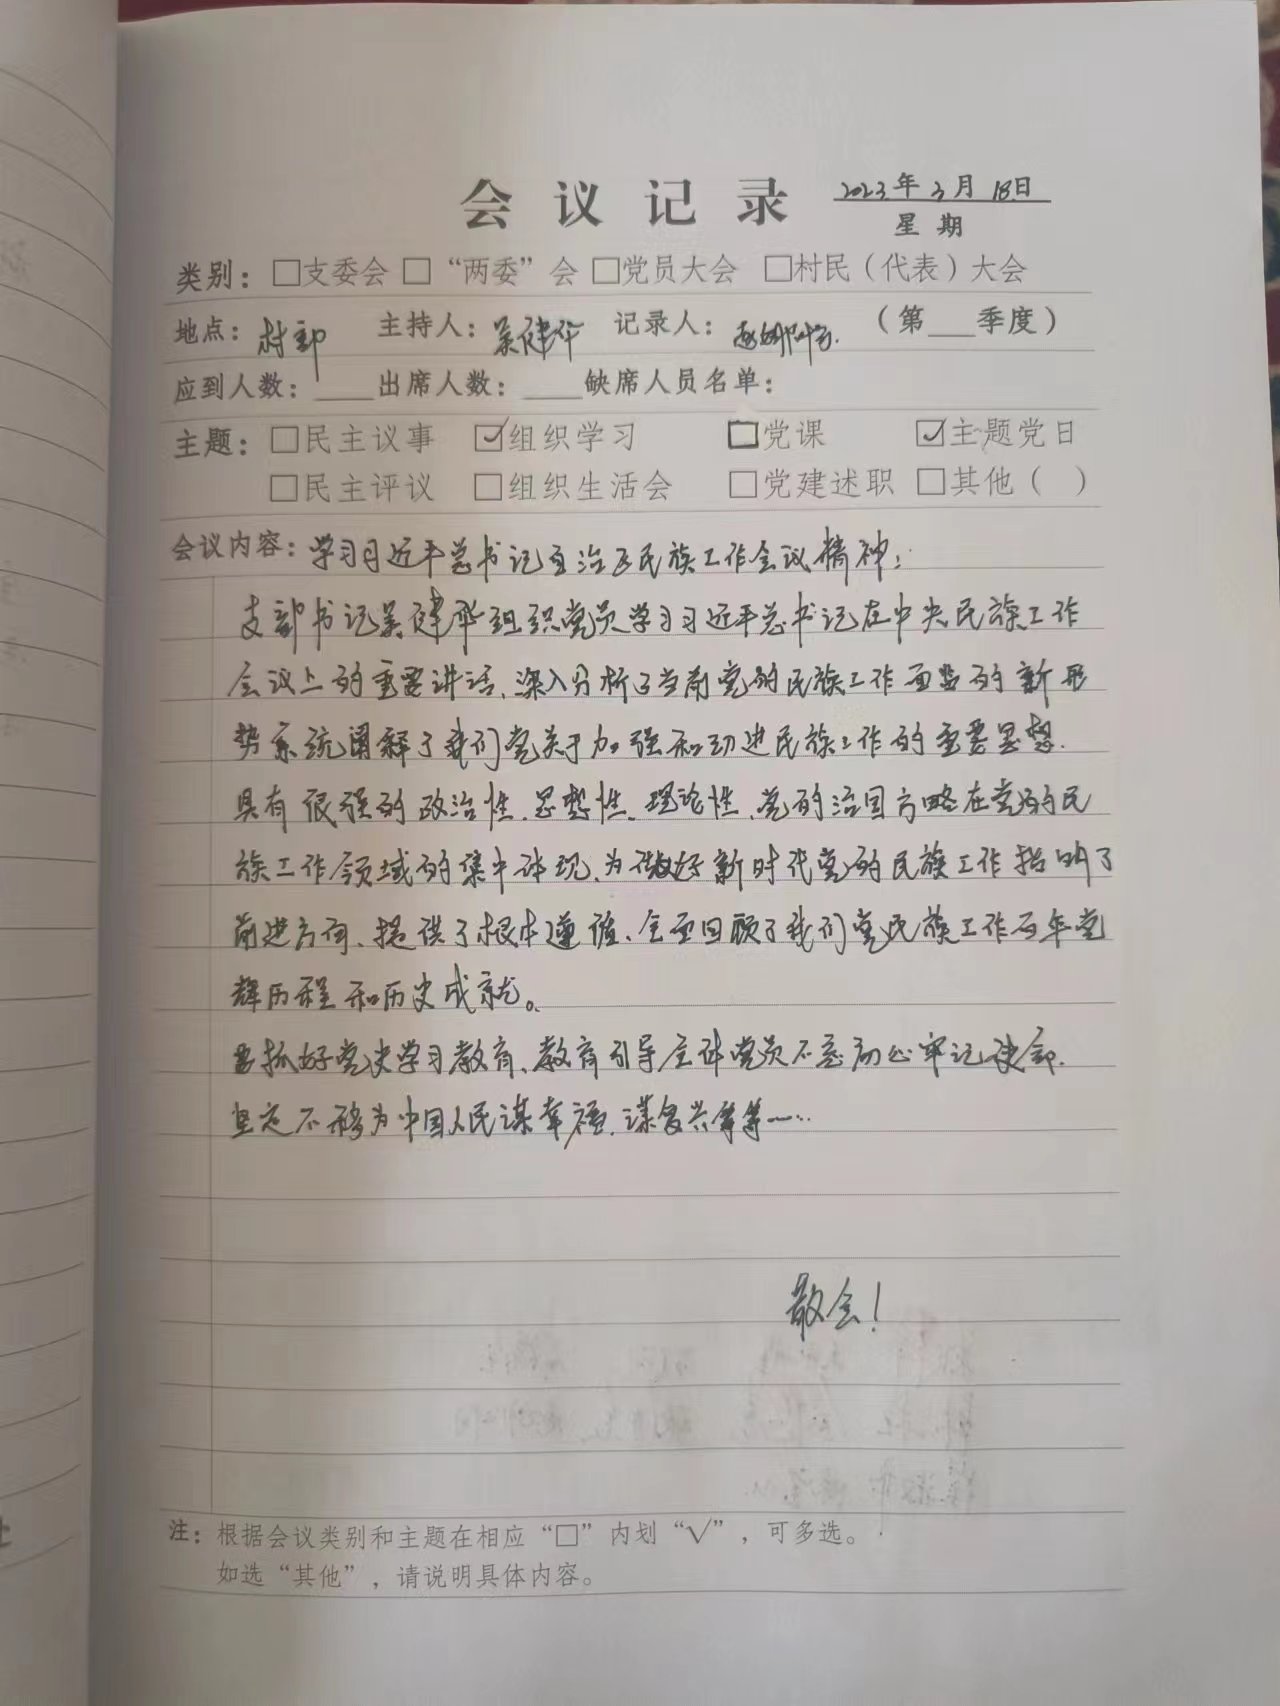 会议记录 2023年3月18日
星期
类别：□支委会 □“两委”会 □党员大会 □村民（代表）大会
地点：村部 主持人：吴建华 记录人： （第___季度）
应到人数：____出席人数：____缺席人员名单：
主题：□民主议事 ☑组织学习 □党课 ☑主题党日
□民主评议 □组织生活会 □党建述职 □其他（ ）
会议内容：学习习近平总书记自治区民族工作会议精神：
支部书记吴建华组织党员学习习近平总书记在中央民族工作
会议上的重要讲话、深入分析了当前党的民族工作面临的新形
势系统阐释了我们党关于加强和改进民族工作的重要思想.
具有很强的政治性、思想性、理论性、党的治国方略在党的民
族工作领域的集中体现、为做好新时代党的民族工作指明了
前进方向、提供了根本遵循、全面回顾了我们党民族工作百年光
辉历程和历史成就。
要抓好党史学习教育、教育引导全体党员不忘初心牢记使命.
坚定不移为中国人民谋幸福、谋复兴等等……
散会！
注：根据会议类别和主题在相应“□”内划“√”，可多选。
如选“其他”，请说明具体内容。